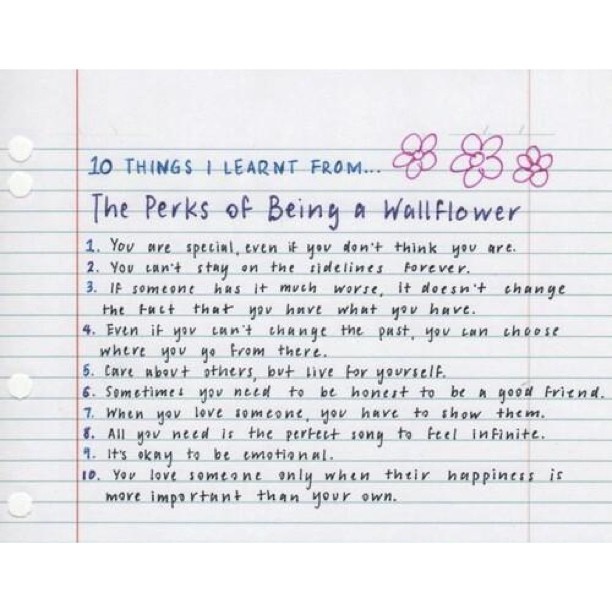 10 THINGS I LEARNT FROM...
The Perks of Being a Wallflower
1. You are special, even if you don't think you are.
2. You can't stay on the sidelines forever.
3. If someone has it much worse, it doesn't change
the fact that you have what you have.
4. Even if you can't change the past, you can choose
where you go from there.
5. Care about others, but live for yourself.
6. Sometimes you need to be honest to be a good friend.
7. When you love someone, you have to show them.
8. All you need is the perfect song to feel infinite.
9. It's okay to be emotional.
10. You love someone only when their happiness is
more important than your own.